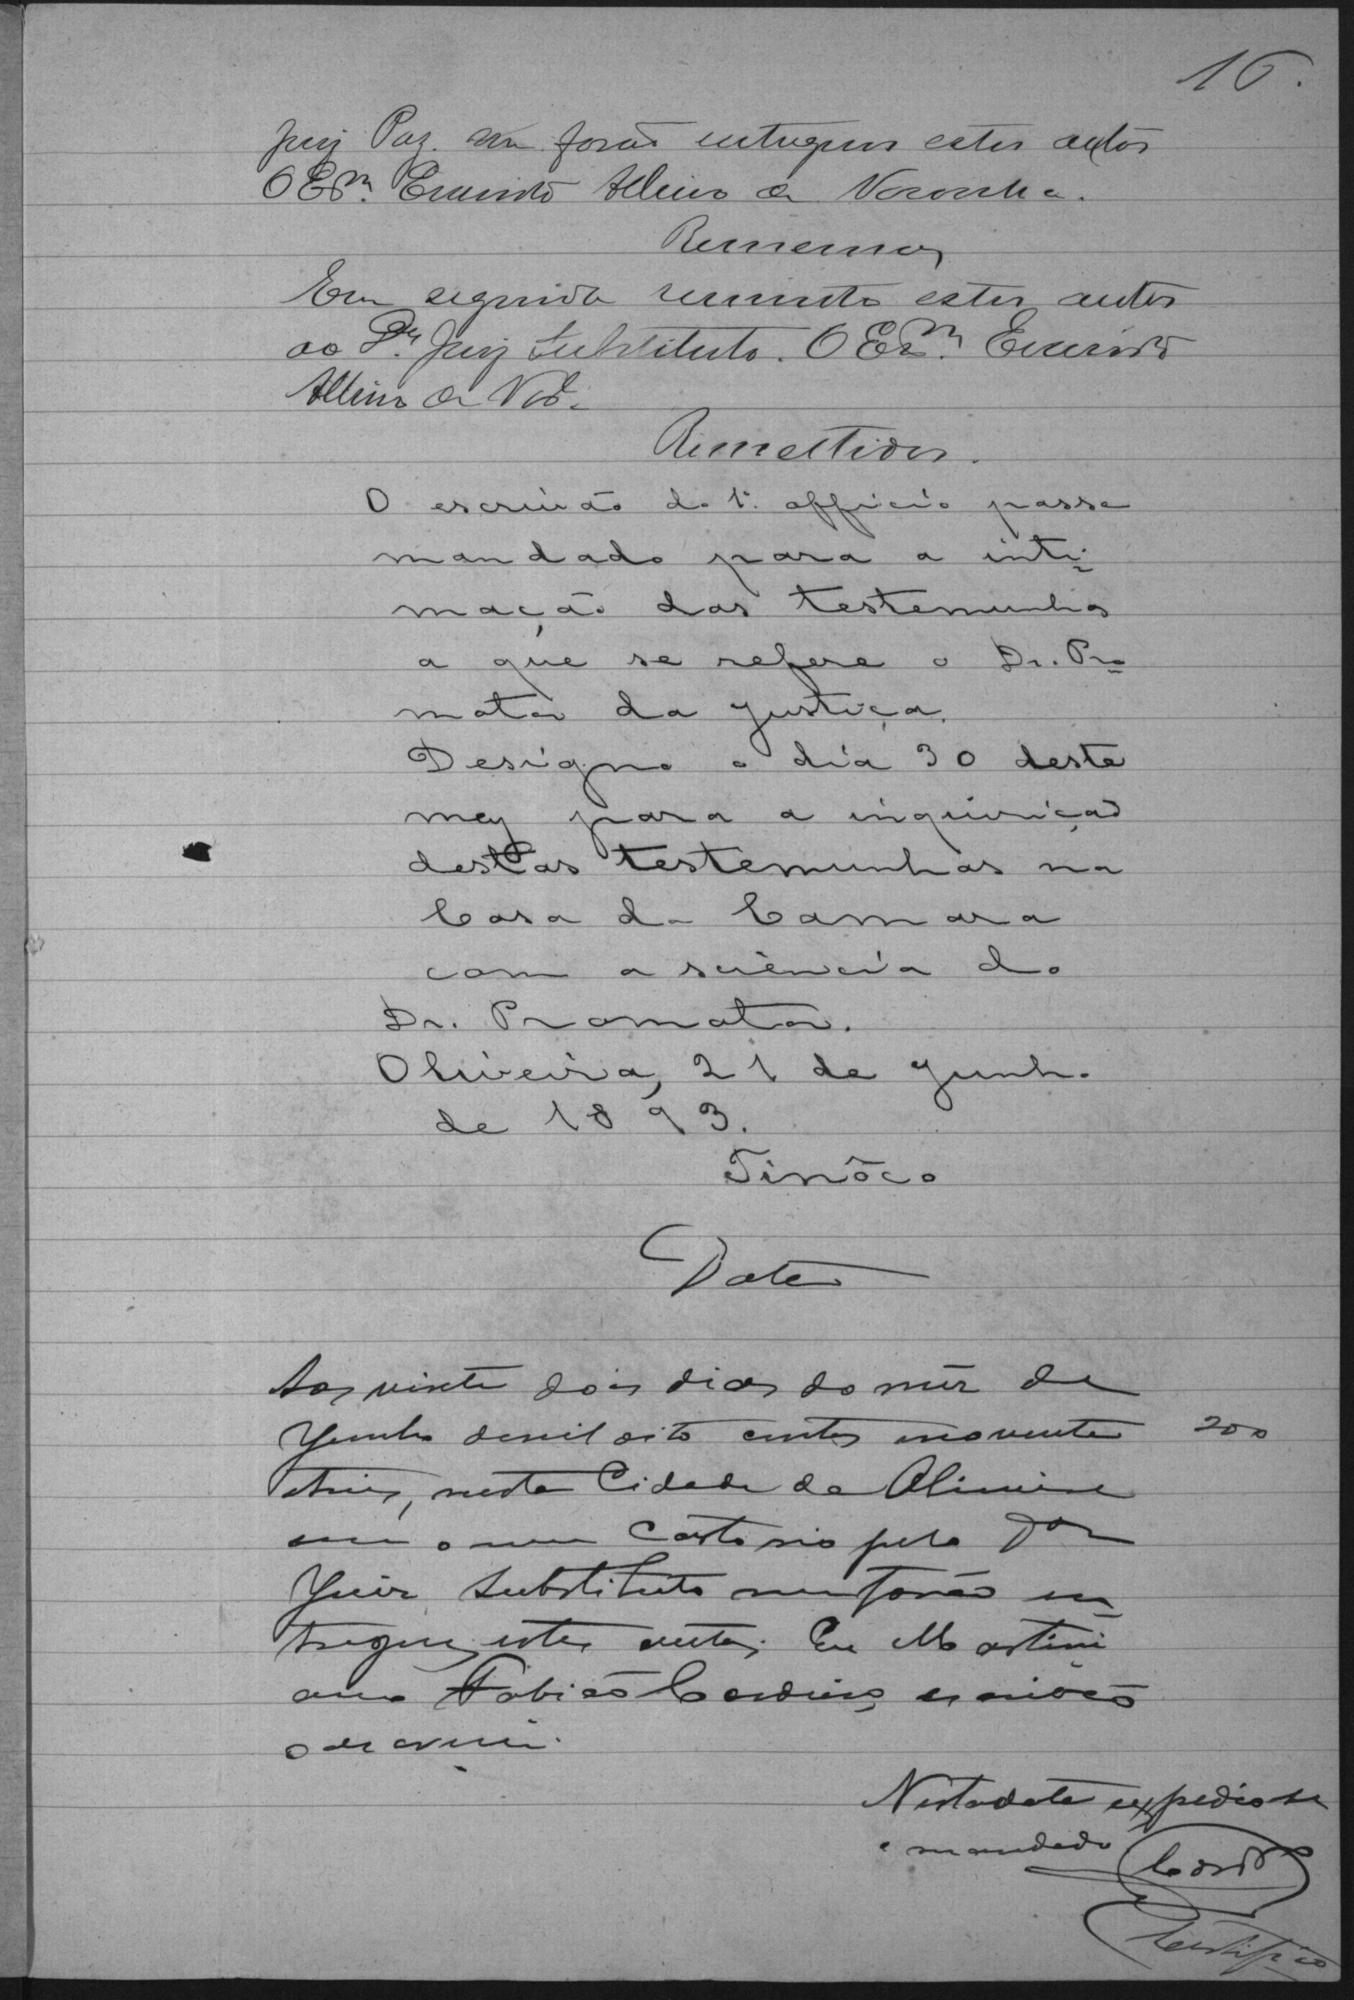 16.
Juiz Paz. me forão entregues estes autos
O Es.m Evaristo Albino de Noronha.
Remessa
Em seguida remetto estes autos
ao Dr. Juiz Substituto. O Es.m Evaristo
Albino de
Remettidos.
O escrivão do 1º. officio passe
mandado para a inti-
mação das testemunhas
a que se refere o Dr. Pro-
motor da justiça.
Designo o dia 30 deste
mez para a inquirição
destas testemunhas na
Casa da Camara
com a sciencia do
Dr. Promotor.
Oliveira, 21 de Junho
de 1893.
Tinôco
Data
Aos vinte dois dias do mez de
Junho de mil oito centos e noventa 200
e tres, nesta Cidade de Oliveira
em o meu Cartorio pelo Dor
Juiz Substituto me forão en-
tregues estes autos. Eu Martini
ano Fabião Cordeiro, escrivão
o escrevi.
Nesta data expedio-se
o mandado
Certifico